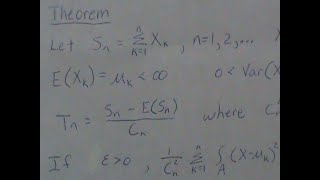 Theorem
Let Sₙ = Σₖ₌₁ⁿ Xₖ , n=1, 2, ...
E(Xₖ) = μₖ < ∞ 0 < Var(X
Tₙ = (Sₙ - E(Sₙ)) / Cₙ where C
If ε>0 , 1/Cₙ² Σₖ₌₁ⁿ ∫_A (X-μₖ)²